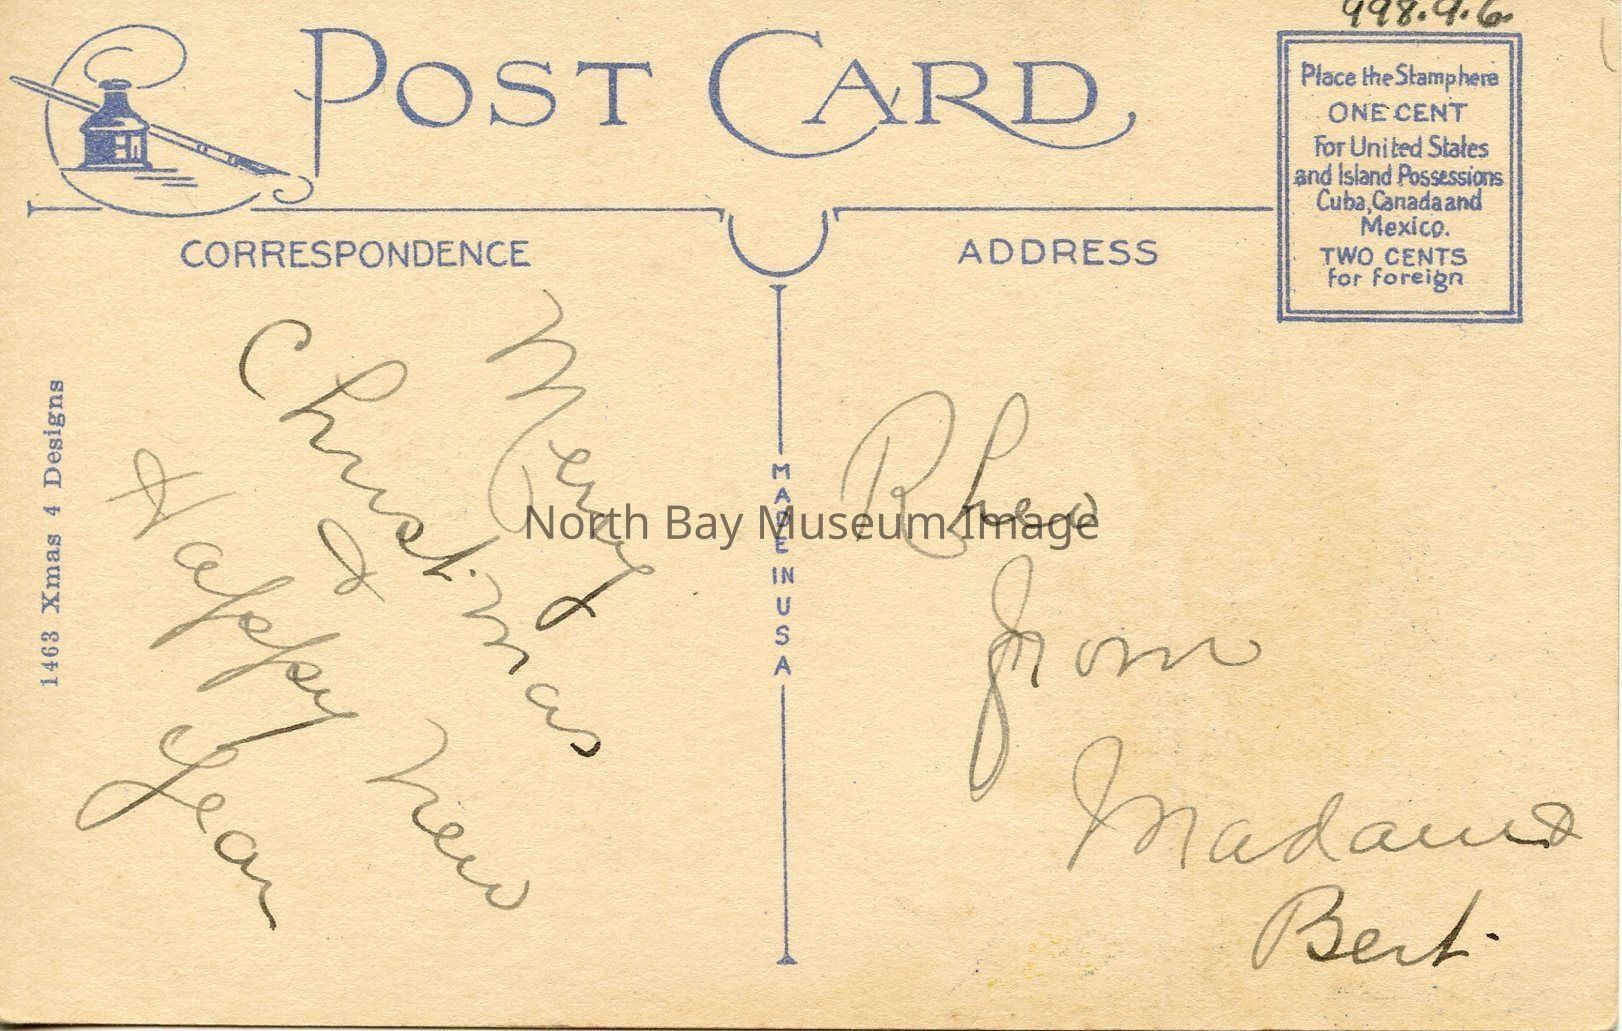 998.9.6.
POST CARD
Place the Stamp here
ONE CENT
For United States
and Island Possessions
Cuba, Canada and
Mexico.
TWO CENTS
for foreign
CORRESPONDENCE
ADDRESS
1463 Xmas 4 Designs
MADE IN USA
Merry
Christmas
&
Happy New
Year
Rhea
from
Madam &
Bert.
North Bay Museum Image